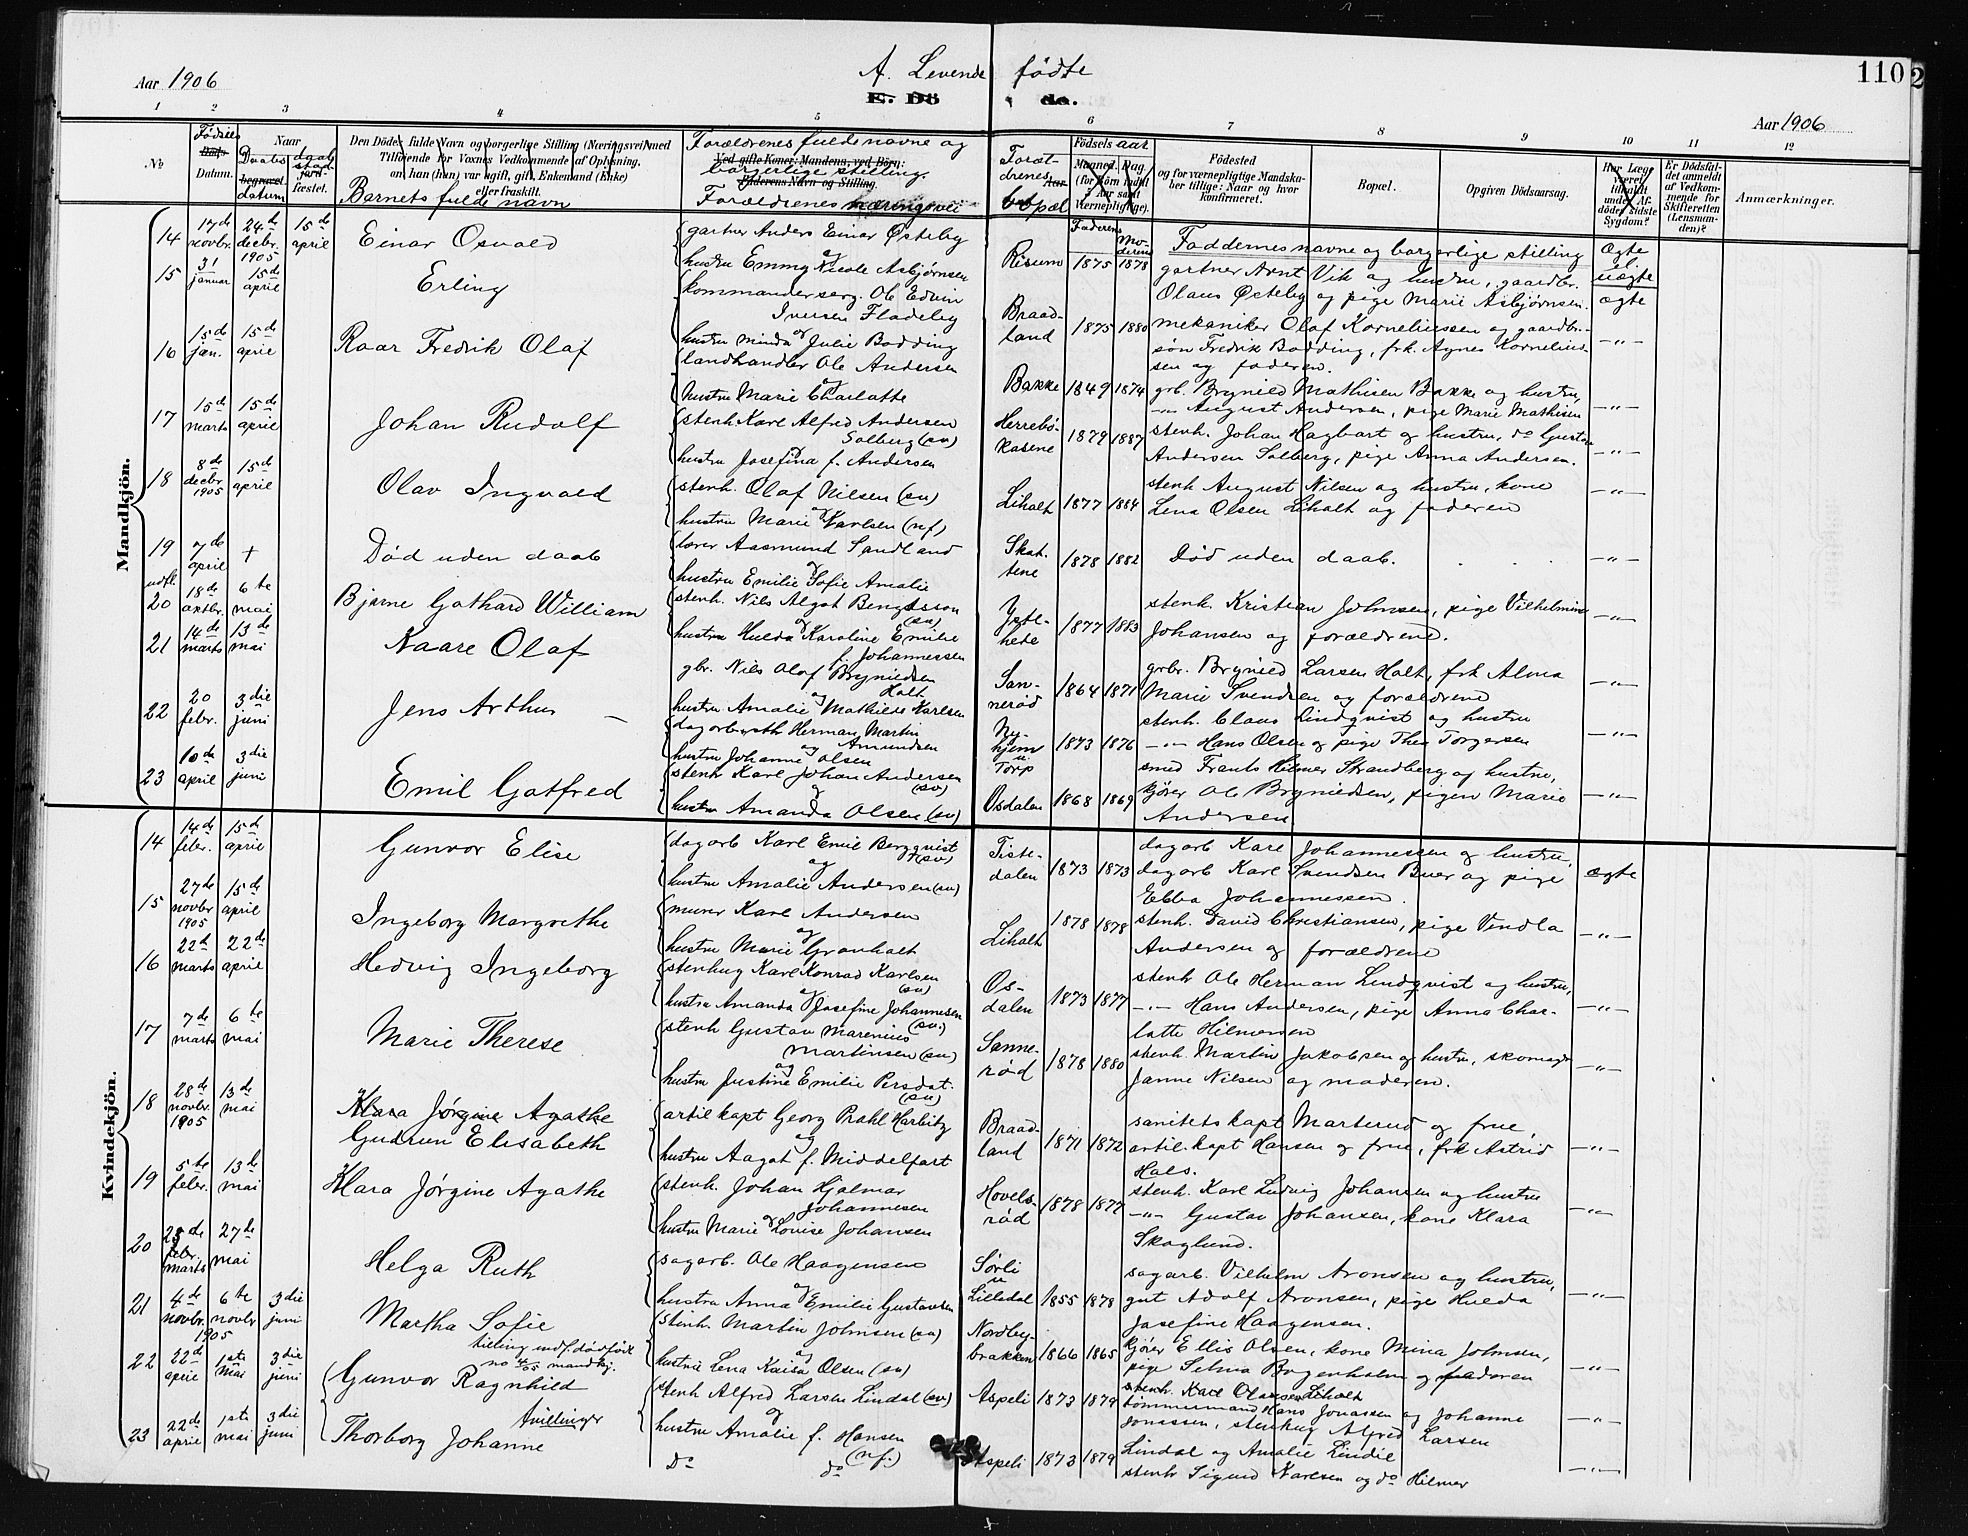 Aar 1906
A. Levende fødte
E. Dö de.
110
2
Aar 1906
1 2 3 4 5 6 7 8 9 10 11 12
No
Fødsels Döds Datum.
Naar
Daabs begravet. datum
Den Dödes fulde Navn og borgerlige Stilling (Næringsvei) med Tilföiende for Voxnes Vedkommende af Oplysning, om han (hun) var ugift, gift, Enkemand (Enke) eller fraskilt.
Barnets fulde navn
Forældrenes fulde navne og borgerlige stilling.
Ved gifte Koner: Mandens, ved Börn: Faderens Navn og Stilling.
Forældrenes næringsvei
Foræl-drenes bopæl
Födsels aar
Maaned. Dag. (for Börn indtil 2 Aar samt Værnepligtige).
Faderens Moderens
Födested og for værnepligtige Mandska-ber tillige: Naar og hvor konfirmeret.
Bopæl.
Opgiven Dödsaarsag.
Har Læge været tilkaldt under Af-dödes sidste Sygdom?
Er Dödsfal-det anmeldt af Vedkom-mende for Skifteretten (Lensman-den)?
Anmærkninger.
Faddernes navne og borgerlige stilling
Ægte el. uægte
Mandkjön.
14 17de novbr. 24de decbr. 1905 15de april Einar Osvald
gartner Anders Einar Østeby og
hustru Emmy Nicole Asbjørnsen
Risum 1875 1878
gartner Arnt Vik og hustru, gaardbr.
Olaus Østeby og pige Marie Asbjørnsen
ægte
15 31 januar 15de april Erling
kommanderserg. Ole Edvin
Iversen Fladeby og
hustru Minda Julie Bodding
Braad-land 1875 1880
mekaniker Olaf Korneliussen og gaardbr.-
søn Fredrik Bodding, frk. Agnes Kornelius-
sen og faderen.
—„—
16 15de jan. 15de april Roar Fredrik Olaf
landhandler Ole Andersen og
hustru Marie Charlotte
Bakke 1849 1874
grb. Brynild Mathisen Bakke og hustru,
—„— August Andersen, pige Marie Mathisen
—„—
17 15de marts 15de april Johan Rudolf
stenh Karl Alfred Andersen
Solberg (sv) og
hustru Josefina f. Andersen
Herrebø-kasene 1879 1887
stenh. Johan Hagbart og hustru, do Gustav
Andersen Solberg, pige Anna Andersen.
—„—
18 8de decbr 1905 15de april Olav Ingvald
stenh. Olaf Nilsen (sv) og
hustru Marie Karlsen (nf)
Liholt 1877 1884
stenh August Nilsen og hustru, kone
Lena Olsen Liholt og faderen
—„—
19 7de april + Død uden daab
lærer Aasmund Sandland og
hustru Emilie Sofie Amalie
Skot-tene 1878 1882
Død uden daab.
—„—
20 18de oktbr. 6te mai Bjarne Gothard William
stenh. Nils Algot Bengtsson (sv) og
hustru Hulda Karoline Emilie
f. Johannessen
1877 1883
stenh. Kristian Johnsen, pige Vilhelmine
Johansen og forældrene.
—„—
21 14de marts 13de mai Kaare Olaf
gbr. Nils Olaf Brynildsen
Holt og
hustru Amalie Mathilde Karlsen
San-nerød 1864 1871
grbr. Brynild Larsen Holt, frk Alma
Marie Svendsen og forældrene
—„—
22 20 febr. 3die juni Jens Arthur —
dagarb. Herman Martin
Amundsen og
hustru Johanne Olsen
Ny-hjem u Torp 1873 1876
stenh. Claus Lindqvist og hustru
—„— Hans Olsen og pige Thea Torgersen
—„—
23 10de april 3die juni Emil Gotfred
stenh Karl Johan Andersen (sv) og
hustru Amanda Olsen (sv)
Osdalen 1868 1869
smed Frants Hilmer Strandberg og hustru,
kjører Ole Brynildsen, pigen Marie
Andersen.
—„—
Kvindekjön.
14 14de febr. 15de april Gunvor Elise
dagarb Karl Emil Bergqvist (sv) og
hustru Amalie Andersen (sv)
Tiste-dalen 1873 1873
dagarb Karl Johannessen og hustru,
dagarb Karl Svendsen Buer og pige
Ebba Johannessen.
ægte
15 27de novbr 1905 15de april Ingeborg Margrethe
murer Karl Andersen og
hustru Marie Granholt
Liholt 1878 1878
stenh. David Christiansen, pige Vendla
Andersen og forældrene
—„—
16 22de marts 22de april Hedvig Ingeborg
stenhug Karl Konrad Karlsen (sv) og
hustru Amanda Josefine Johannesen (sv.)
Os-dalen 1873 1877
stenh Ole Herman Lindqvist og hustru,
—„— Hans Andersen, pige Anna Char-
lotte Hilmersen
—„—
17 7de marts 6te mai Marie Therese
stenh Gustav Marenius
Martinsen (sv) og
hustru Justine Emilie Persdat. (sv)
Sanne-rød 1878 1880
stenh. Martin Jakobsen og hustru, skomager
Janne Nilsen og moderen.
—„—
18 28de novbr. 1905 13de mai Klara Jørgine Agathe
Gudrun Elisabeth
artil kapt Georg Prahl Harbitz og
hustru Aagot f. Middelfart
Braad-land 1871 1872
sanitetskapt Marterud og frue,
artil. kapt Hansen og frue, frk Astrid
Hals.
—„—
19 5te febr. 13de mai Klara Jørgine Agathe
stenh. Johan Hjalmar
Johannesen og
hustru Marie Lovise Johansen
Hovels-rød 1878 1877
stenh. Karl Ludvig Johansen og hustru
—„— Gustav Johansen, kone Klara
Skoglund.
—„—
20 febr. marts 27de mai Helga Ruth
sagarb. Ole Haagensen og
hustru Anna Emilie Gustavsen
Sørli u Lilledal 1855 1878
sagarb. Vilhelm Aronsen og hustru,
gut Adolf Aronsen, pige Hulda
Josefine Haagensen.
—„—
21 4de novbr. 1905 6te novbr 3die juni Martha Sofie
tvilling indf. dødfødt
no 4/05 mandkj.
stenh. Martin Johnsen (sv) og
hustru Lena Kaisa Olsen (sv)
Nordby-brakken 1866 1865
kjører Ellis Olsen, kone Mina Johnsen,
pige Selma Bogenholm og faderen
—„—
22 22de april 1ste mai 3die juni Gunvor Ragnhild
tvillinger
stenh Alfred Larsen Lindal (sv) og
hustru Amalie f. Hansen (nf.)
Aspeli 1873 1879
stenh. Karl Olausen Liholt
tømmermand Hans Jonassen og Johanne
Jonassen, stenhug Alfred Larsen
—„—
23 22de april 1ste mai 3die juni Thorborg Johanne
Do do
Aspeli 1873 1879
Lindal og Amalie Lindle
stenh Sigurd Karlsen og do Hilmer
—„—